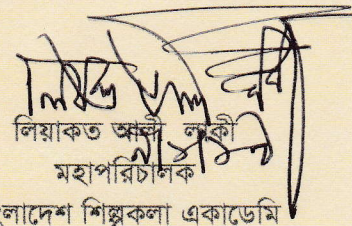 লিয়াকত আলী লাকী
মহাপরিচালক
লাদেশ শিল্পকলা একাডেমি